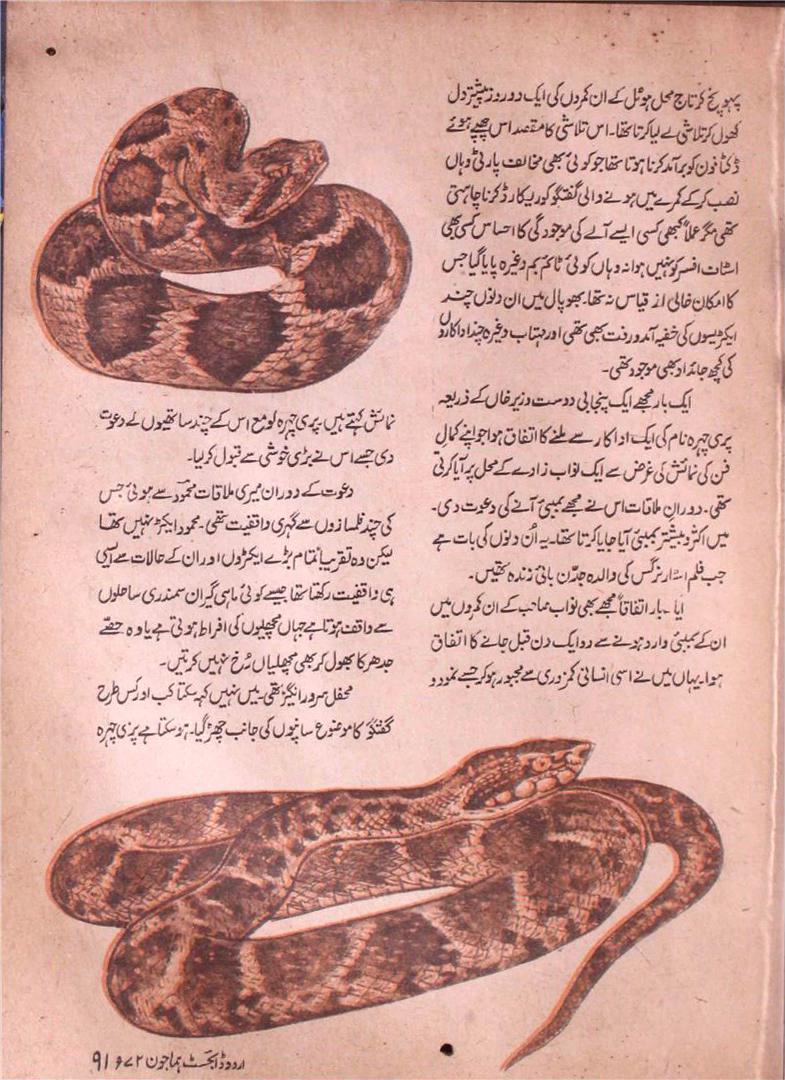 پہونچ کر تاج محل ہوٹل کے ان کمروں کی ایک دو روز پیشتر دل
کھول کر تلاشی لے لیا کرتا تھا۔ اس تلاشی کا مقصد اس چھپے ہوئے
ڈکٹا فون کو برآمد کرنا ہوتا تھا جو کوئی بھی مخالف پارٹی وہاں
نصب کرکے کمرے میں ہونے والی گفتگو کو ریکارڈ کرنا چاہتی
تھی مگر عملاً کبھی کسی ایسے آلے کی موجودگی کا احساس کسی بھی
اسٹاف افسر کو نہیں ہوا نہ وہاں کوئی ٹائم بم وغیرہ پایا گیا جس
کا امکان خالی از قیاس نہ تھا۔ بھوپال میں ان دنوں چند
ایکٹریسوں کی خفیہ آمد و رفت بھی تھی اور مہتاب وغیرہ چند اداکاروں
کی کچھ جائداد بھی موجود تھی۔
ایک بار مجھے ایک پنجابی دوست وزیر خاں کے ذریعہ
پری چہرہ نام کی ایک اداکار سے ملنے کا اتفاق ہوا جو اپنے کمالِ
فن کی نمائش کی غرض سے ایک نواب زادے کے محل پر آیا کرتی
تھی۔ دورانِ ملاقات اس نے مجھے بمبئی آنے کی دعوت دی۔
میں اکثر و بیشتر بمبئی آیا جایا کرتا تھا۔ یہ اُن دنوں کی بات ہے
جب فلم اسٹار نرگس کی والدہ جدّن بائی زندہ تھیں۔
ایک بار اتفاقاً مجھے بھی نواب صاحب کے ان کمروں میں
ان کے بمبئی وارد ہونے سے دو ایک دن قبل جانے کا اتفاق
ہوا۔ یہاں میں نے اسی انسانی کمزوری سے مجبور ہو کر جسے نمود و
نمائش کہتے ہیں۔ پری چہرہ کو مع اس کے چند ساتھیوں کے دعوت
دی جسے اس نے بڑی خوشی سے قبول کرلیا۔
دعوت کے دوران میری ملاقات محمود سے ہوئی جس
کی چند فلمسازوں سے گہری واقفیت تھی۔ محمود ایکٹر نہیں تھا
لیکن وہ تقریباً تمام بڑے ایکٹروں اور ان کے حالات سے ایسی
ہی واقفیت رکھتا تھا جیسے کوئی ماہی گیر ان سمندری ساحلوں
سے واقف ہوتا ہے جہاں مچھلیوں کی افراط ہوتی ہے یا وہ حصے
جدھر کا بھول کر بھی مچھلیاں رُخ نہیں کرتیں۔
محفل سرور انگیز تھی۔ میں نہیں کہہ سکتا کب اور کس طرح
گفتگو کا موضوع سانپوں کی جانب چھڑ گیا۔ ہو سکتا ہے پری چہرہ
اردو ڈائجسٹ ہما جون ۷۲ء ۹۱